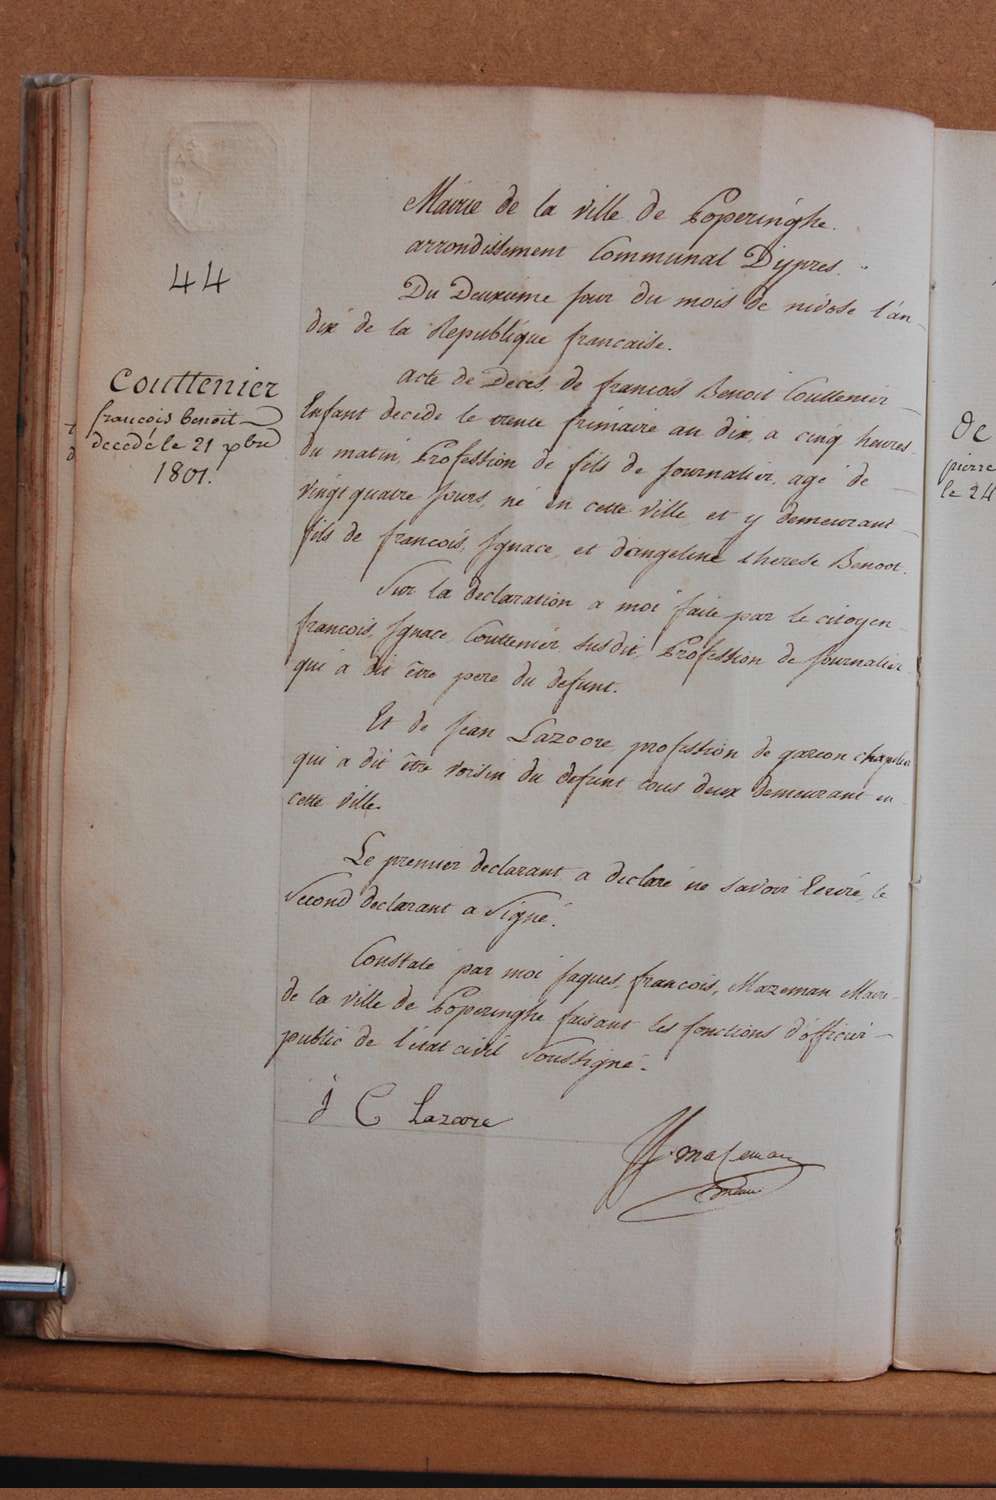 44
Couttenier
francois benoit
decedé le 21 xbre
1801.
Mairie de la ville de Poperinghe.
arrondissement Communal Dijpres.
Du Deuxieme jour du mois de nivose l'an
dix de la Republique francaise.
acte de Deces, de francois Benoit Couttenier
Enfant decede le trente frimaire an dix, a cinq heures
du matin, Profession de fils de Journalier, agé de
vingt quatre jours, né en cette ville, et y demeurant
fils de francois, Ignace, et d'angeline therese Benoot.
Sur la declaration a moi faite par le citoyen
francois, Ignace Couttenier susdit, Profession de journalier
qui a dit être pere du defunt.
Et de Jean Lazoore profession de garcon chapelier
qui a dit être voisin du defunt tous deux demeurant en
cette ville.
Le premier declarant a declaré ne savoir Ecrire, le
Second declarant a Signé.
Constaté par moi Jaques, francois, Mazeman Maire
de la ville de Poperinghe faisant les fonctions d'officier
public de l'état civil Soussigné.
J C Lazoore
JF. Mazeman
De
pierre
le 24